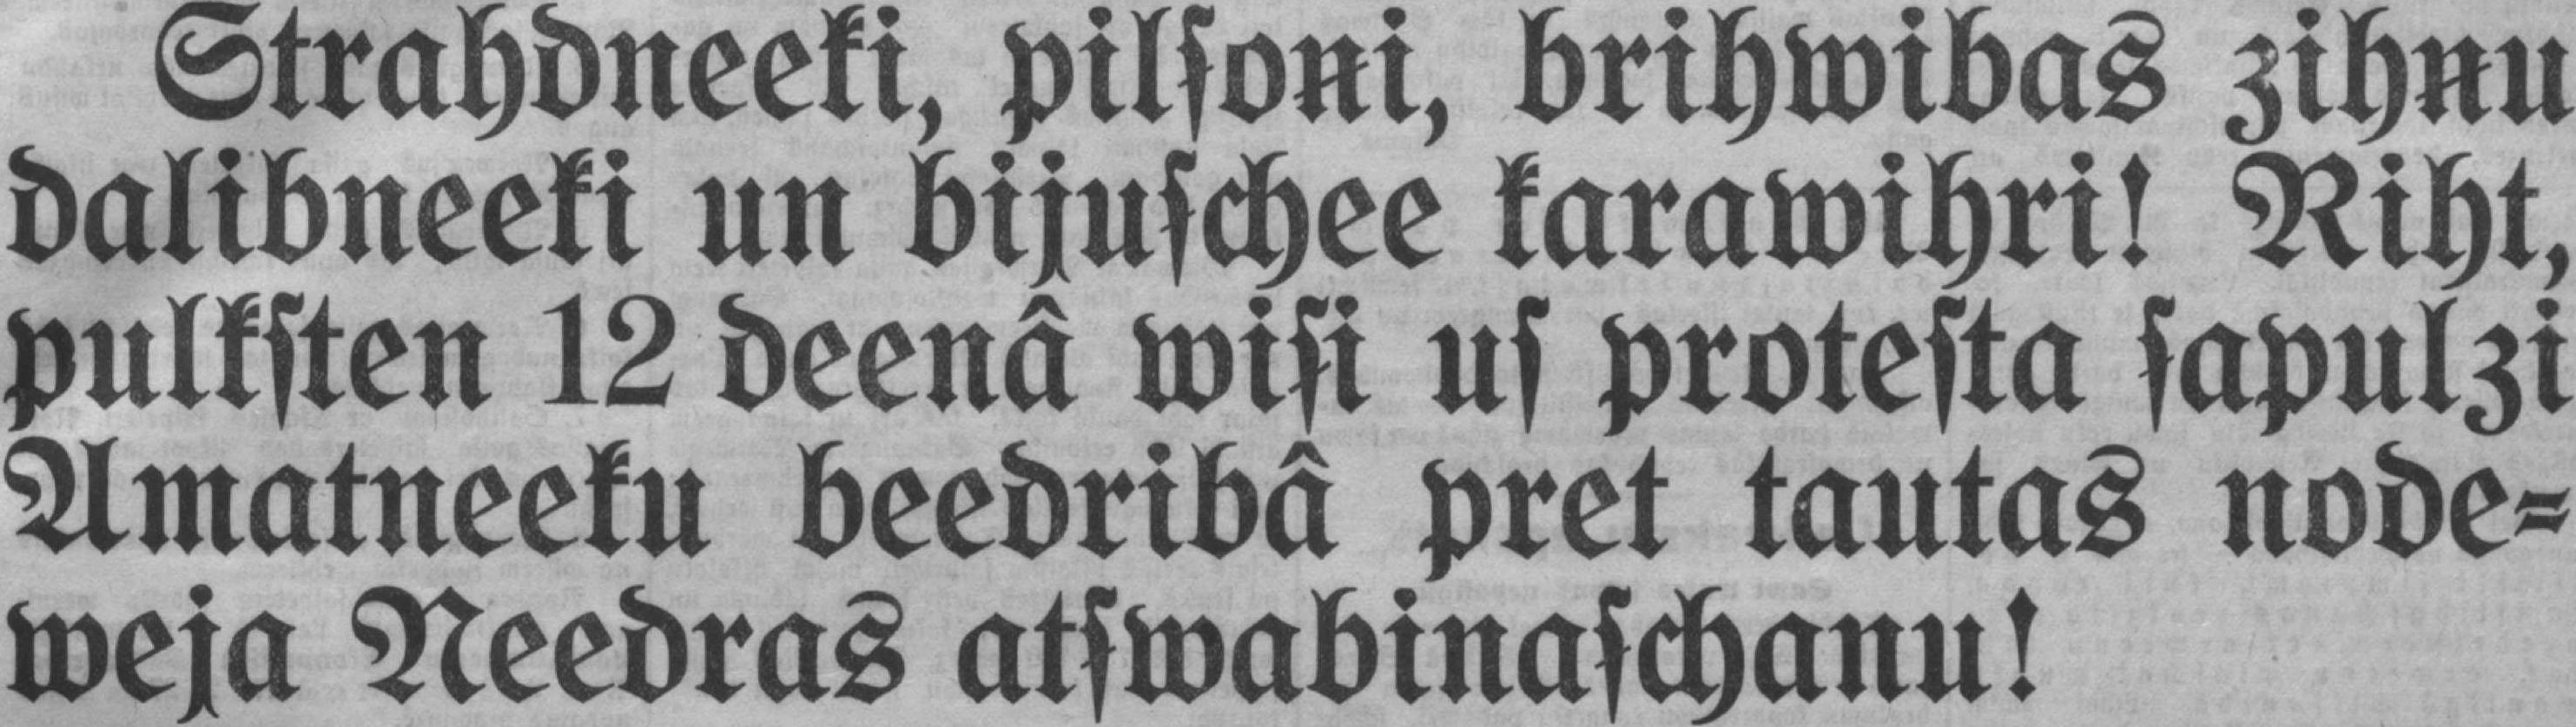 Strahdneeki, pilſoņi, brihwibas zihņu
dalibneeki un bijuſchee karawihri! Riht,
pulkſten 12 deenâ wiſi uſ proteſta ſapulzi
Amatneeku beedribâ pret tautas node⸗
weja Needras atſwabinaſchanu!